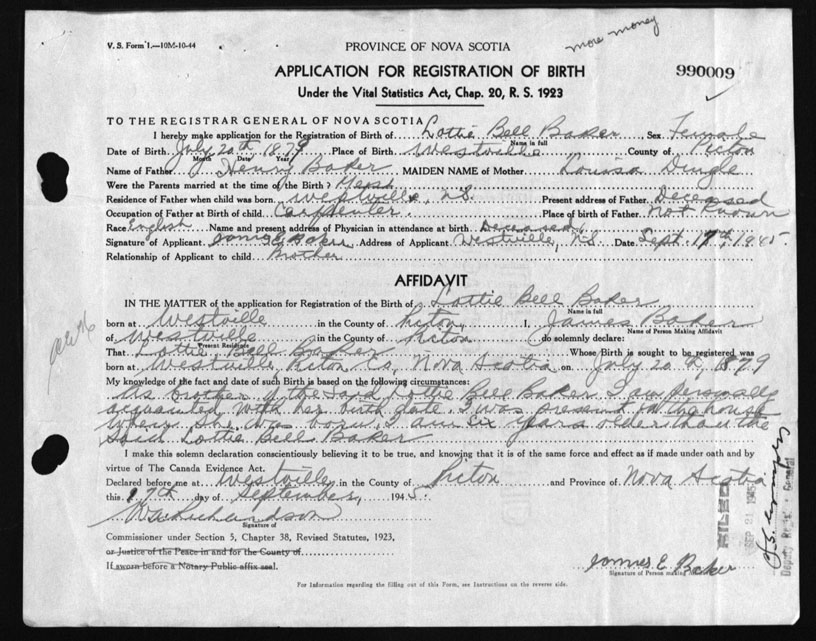 V. S. Form 1.—10M-10-44
PROVINCE OF NOVA SCOTIA
more money
APPLICATION FOR REGISTRATION OF BIRTH
990009
Under the Vital Statistics Act, Chap. 20, R. S. 1923
TO THE REGISTRAR GENERAL OF NOVA SCOTIA
I hereby make application for the Registration of Birth of Lottie Bell Baker Sex Female
Name in full
Date of Birth July 20th 1879 Place of Birth Westville County of Picton
Month Date Year
Name of Father Henry Baker MAIDEN NAME of Mother Louisa Dingle
Were the Parents married at the time of the Birth?
Residence of Father when child was born. Westville, N.S. Present address of Father. Deceased
Occupation of Father at Birth of child. Carpenter. Place of birth of Father. Not Known
Race English Name and present address of Physician in attendance at birth. Deceased
Signature of Applicant. James E Baker Address of Applicant Westville, N.S. Date Sept. 17th, 1945.
Relationship of Applicant to child Brother
AFFIDAVIT
IN THE MATTER of the application for Registration of the Birth of Lottie Bell Baker
Name in full
born at Westville in the County of Picton I, James Baker
Name of Person Making Affidavit
of Westville in the County of Picton do solemnly declare:
Present Residence
That Lottie Bell Baker Whose Birth is sought to be registered was
born at Westville, Picton Co, Nova Scotia on July 20th, 1879
My knowledge of the fact and date of such Birth is based on the following circumstances:
As brother of the said Lottie Bell Baker I am personally
acquainted with her birth date. I was present in the house
when she was born. I am six years older than the
said Lottie Bell Baker
I make this solemn declaration conscientiously believing it to be true, and knowing that it is of the same force and effect as if made under oath and by
virtue of The Canada Evidence Act.
Declared before me at Westville in the County of Picton and Province of Nova Scotia
this 17th day of September, 1945.
Richardson
Signature of
Commissioner under Section 5, Chapter 38, Revised Statutes, 1923,
or Justice of the Peace in and for the County of
If sworn before a Notary Public affix seal.
James E Baker
Signature of Person making
For Information regarding the filling out of this Form, see Instructions on the reverse side.
FILED
SEP 21 1945
Deputy Registrar - General